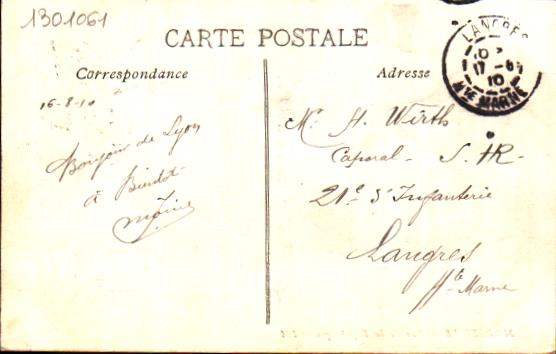 1301061
CARTE POSTALE
Correspondance
Adresse
LANGRES
17-8
10
Hte MARNE
16-8-10
Bonjour de Lyon
à Bientôt
Mr H. Wirth
Caporal - S. H R -
21e d'Infanterie
Langres
Hte Marne